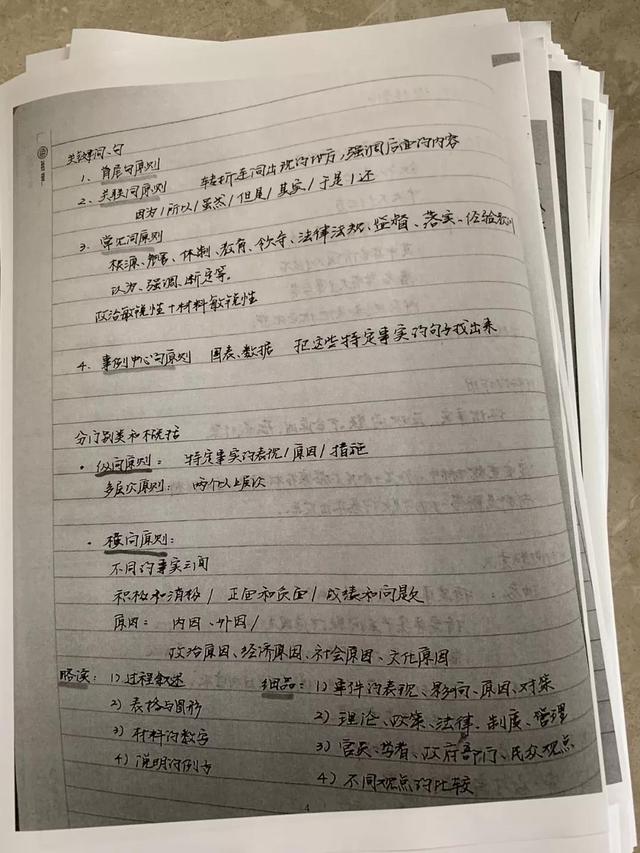 关键词、句
1. 首尾句原则
2. 关联词原则 转折连词出现的地方,强调后面的内容
因为/所以/虽然/但是/其实/于是/还
3. 常见词原则
根源、腐害、体制、教育、领导、法律法规、监督、落实、经验教训
认为、强调、断定等。
政治敏锐性+材料敏锐性
4. 事例中心句原则 图表、数据 把这些特定事实的句子找出来
分门别类和不概括
· 纵向原则: 特定事实的表现/原因/措施
多层次原则: 两个以上层次
· 横向原则:
不同的事实之间
积极和消极/正面和负面/成绩和问题
原因: 内因、外因/
政治原因、经济原因、社会原因、文化原因
略读: 1) 过程叙述 细品: 1) 事件的表现、影响、原因、对策
2) 表格与图形 2) 理论、政策、法律、制度、管理
3) 材料的数字 3) 官员、学者、政府部门、民众观点
4) 说明的例子 4) 不同观点的比较
4